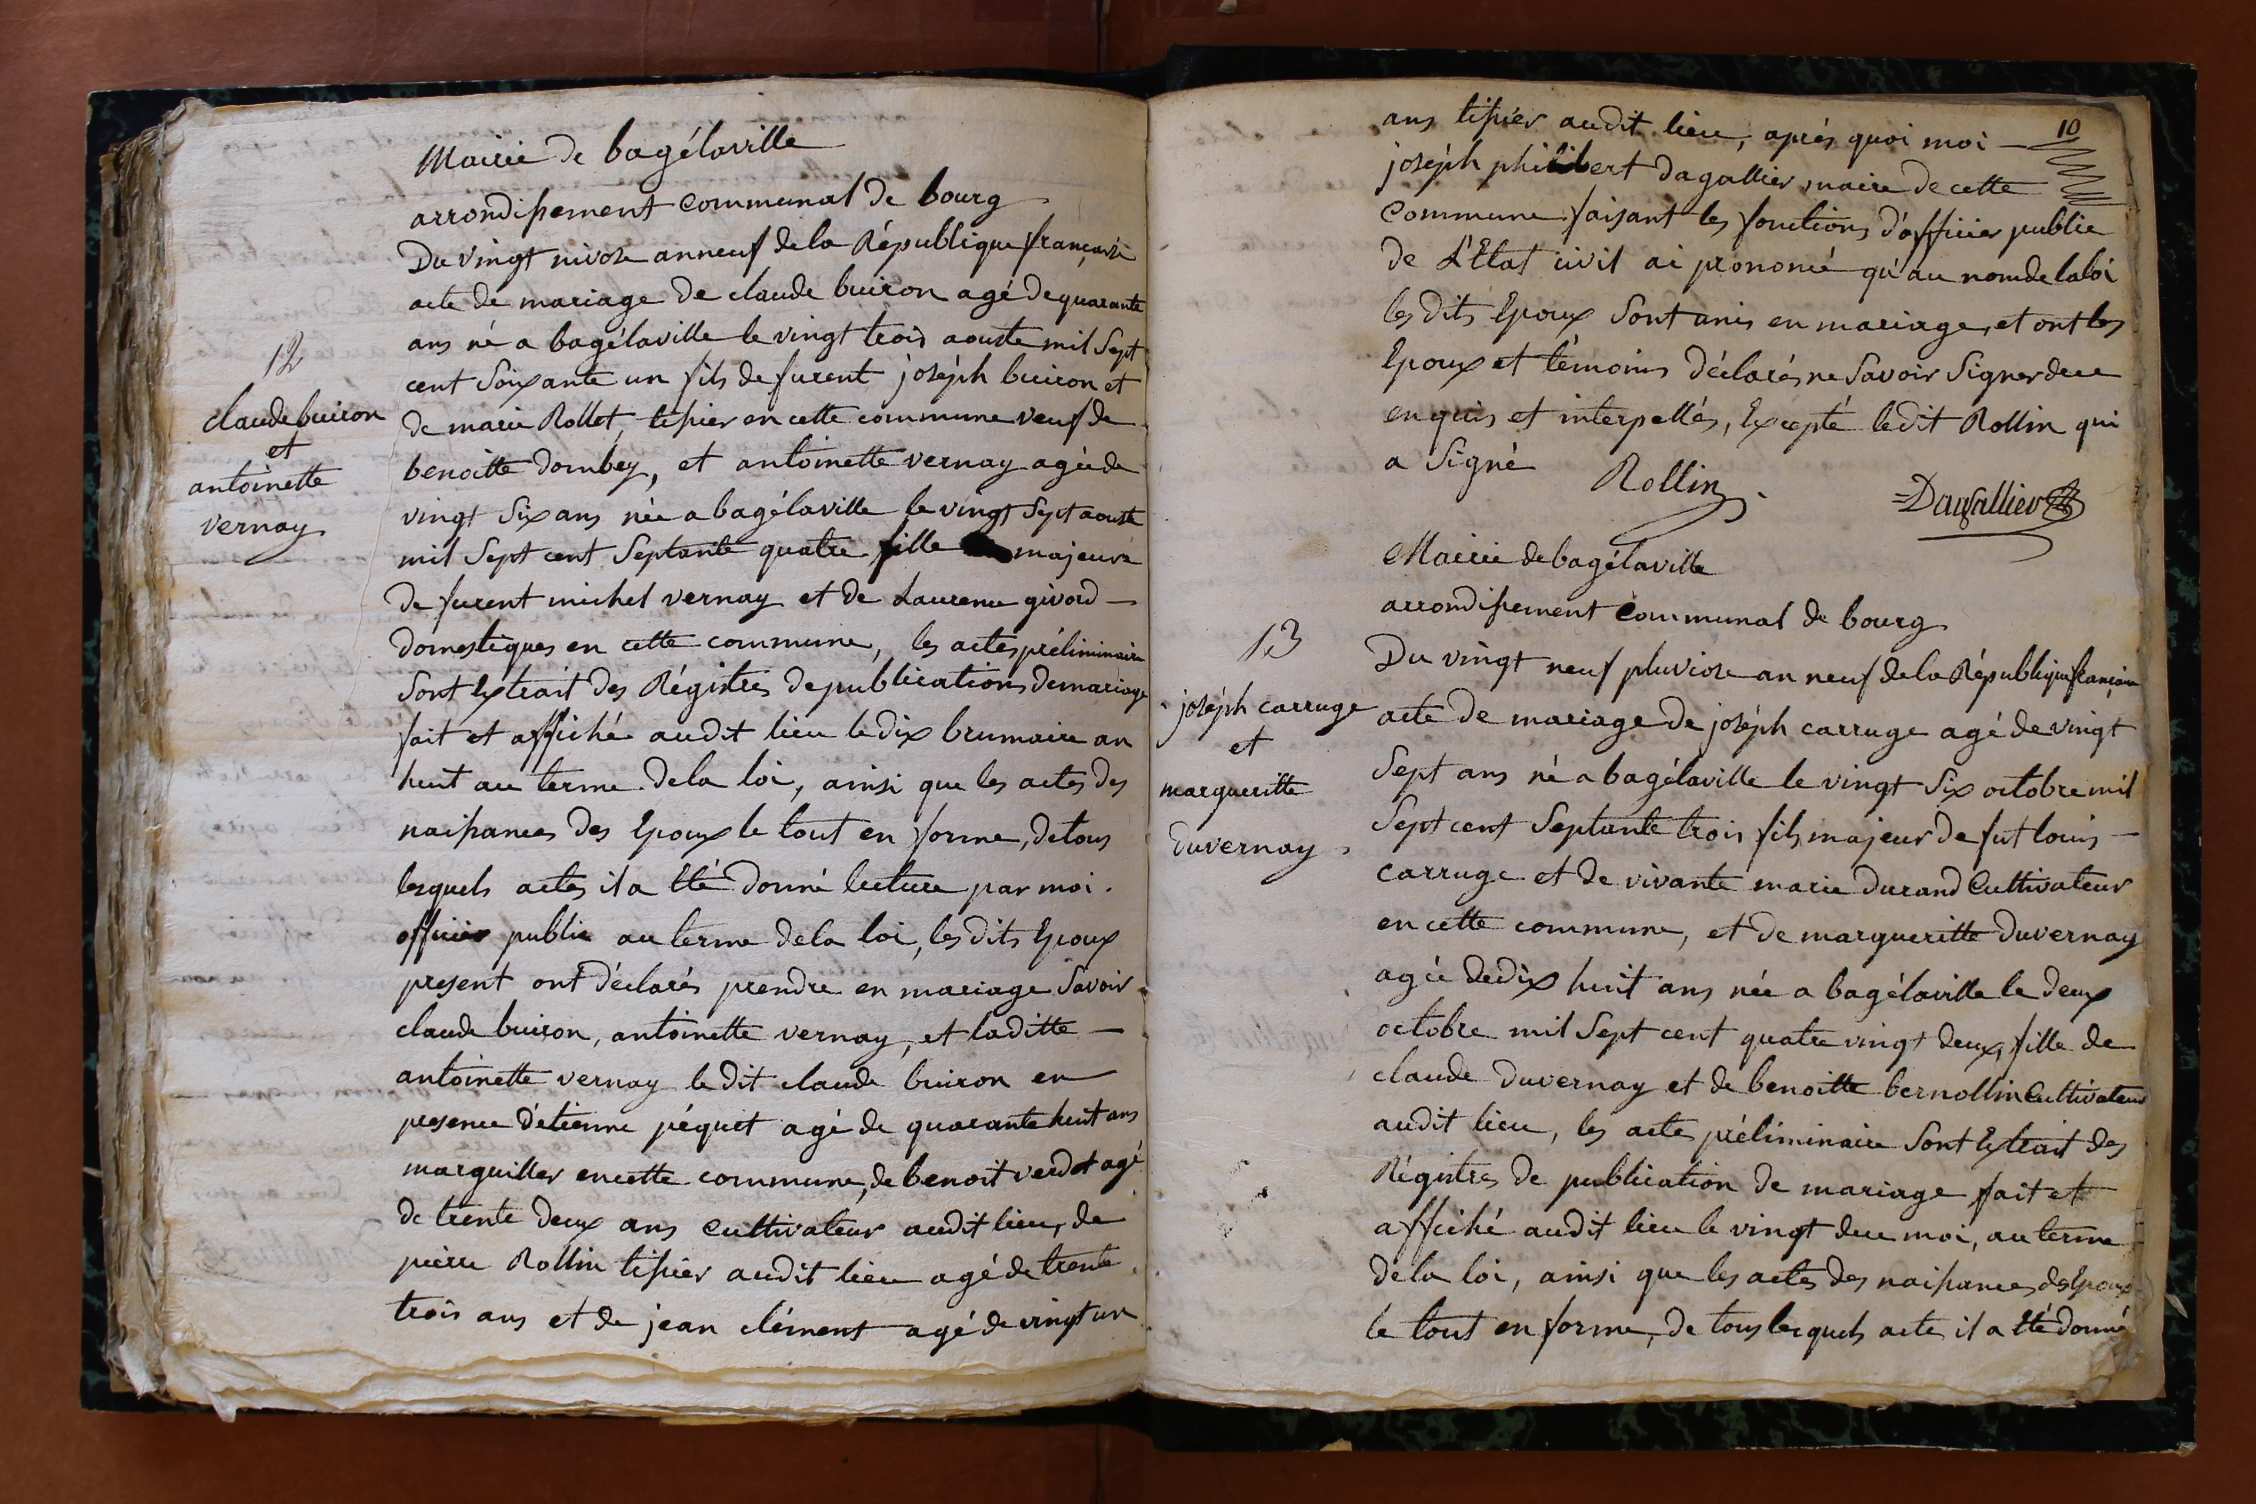 Mairie de bagélaville
arrondissement communal de bourg
Du vingt nivose an neuf de la République française
acte de mariage de claude buiron agé de quarante
ans né a bagélaville le vingt trois aouste mil Sept
cent Soixante un fils de furent joséph buiron et
de marie Rollet, tissier en cette commune veuf de
benoitte dombey, et antoinette vernay agée de
vingt Six ans née a bagélaville le vingt Sept aouste
mil Sept cent Septante quatre fille majeure
de furent michel vernay et de Laurence givord
domestiques en cette commune, les actes préliminaire
Sont Extrait des Régistres de publications de mariage
fait et affiché audit lieu le dix brumaire an
huit au terme de la loi, ainsi que les actes des
naissances des Epoux le tout en forme, de tous
lesquels actes il a Eté donné lecture par moi.
officier public au terme de la loi, les dits Epoux
present ont déclarés prendre en mariage Savoir
claude buiron, antoinette vernay, et laditte
antoinette vernay le dit claude buiron en
presence d'étienne péquet agé de quarante huit ans
marguiller en cette commune, de benoit verdet agé
de trente deux ans cultivateur audit lieu, de
pierre Rollin tissier audit lieu agé de trente
trois ans et de jean clément agé de vingt un
12
claude buiron
et
antoinette
vernay
10
ans tissier audit lieu, aprés quoi moi
joséph philibert dagallier maire de cette
Commune faisant les fonctions d'officier public
de L'Etat civil ai prononcé qu'au nom de la loi
les dits Epoux Sont unis en mariage, et ont les
Epoux et témoins déclarés ne Savoir Signer de ce
enquis et interpellés, Excepté ledit Rollin qui
a Signé
Rollin Dagallier
Mairie de bagélaville
arrondissement communal de bourg
Du vingt neuf pluviose an neuf de la République française
acte de mariage de joséph carruge agé de vingt
Sept ans né a bagélaville le vingt Six octobre mil
Sept cent Septante trois fils majeur de fut louis
carruge et de vivante marie durand cultivateur
en cette commune, et de margueritte duvernay
agée de dix huit ans née a bagélaville le deux
octobre mil Sept cent quatre vingt deux, fille de
claude duvernay et de benoitte bernollin cultivateur
audit lieu, les actes préliminaire Sont Extrait des
Régistres de publication de mariage fait et
affiché audit lieu le vingt du moi, au terme
de la loi, ainsi que les actes des naissances des Epoux
le tout en forme, de tous lesquels acte il a Eté donné
13
joséph carruge
et
margueritte
duvernay